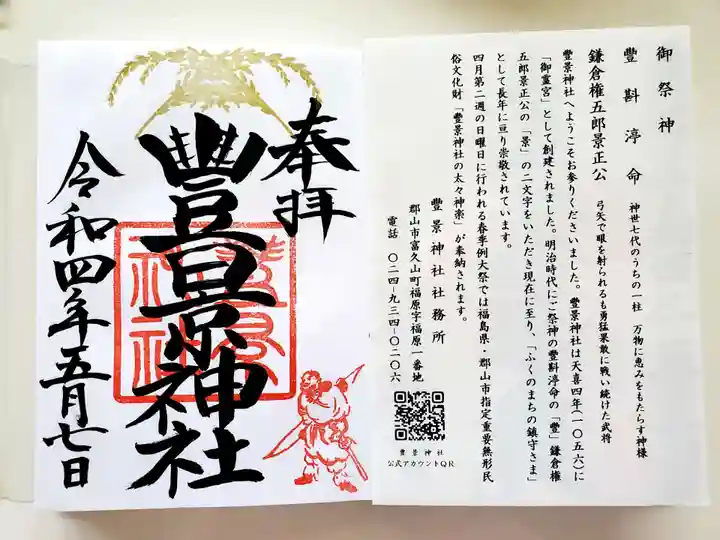 奉拝
豐景神社
令和四年五月七日
御祭神
豐斟渟命 神世七代のうちの一柱 万物に恵みをもたらす神様
鎌倉権五郎景正公 弓矢で眼を射られるも勇猛果敢に戦い続けた武将
豐景神社へようこそお参りくださいました。豐景神社は天喜四年(一〇五六)に
「御霊宮」として創建されました。明治時代にご祭神の豐斟渟命の「豐」鎌倉権
五郎景正公の「景」の二文字をいただき現在に至り、「ふくのまちの鎮守さま」
として長年に亘り崇敬されています。
四月第二週の日曜日に行われる春季例大祭では福島県・郡山市指定重要無形民
俗文化財「豐景神社の太々神楽」が奉納されます。
豐景神社社務所
郡山市富久山町福原字福原一番地
電話 〇二四-九三四-〇二〇六
豐景神社
公式アカウントQR